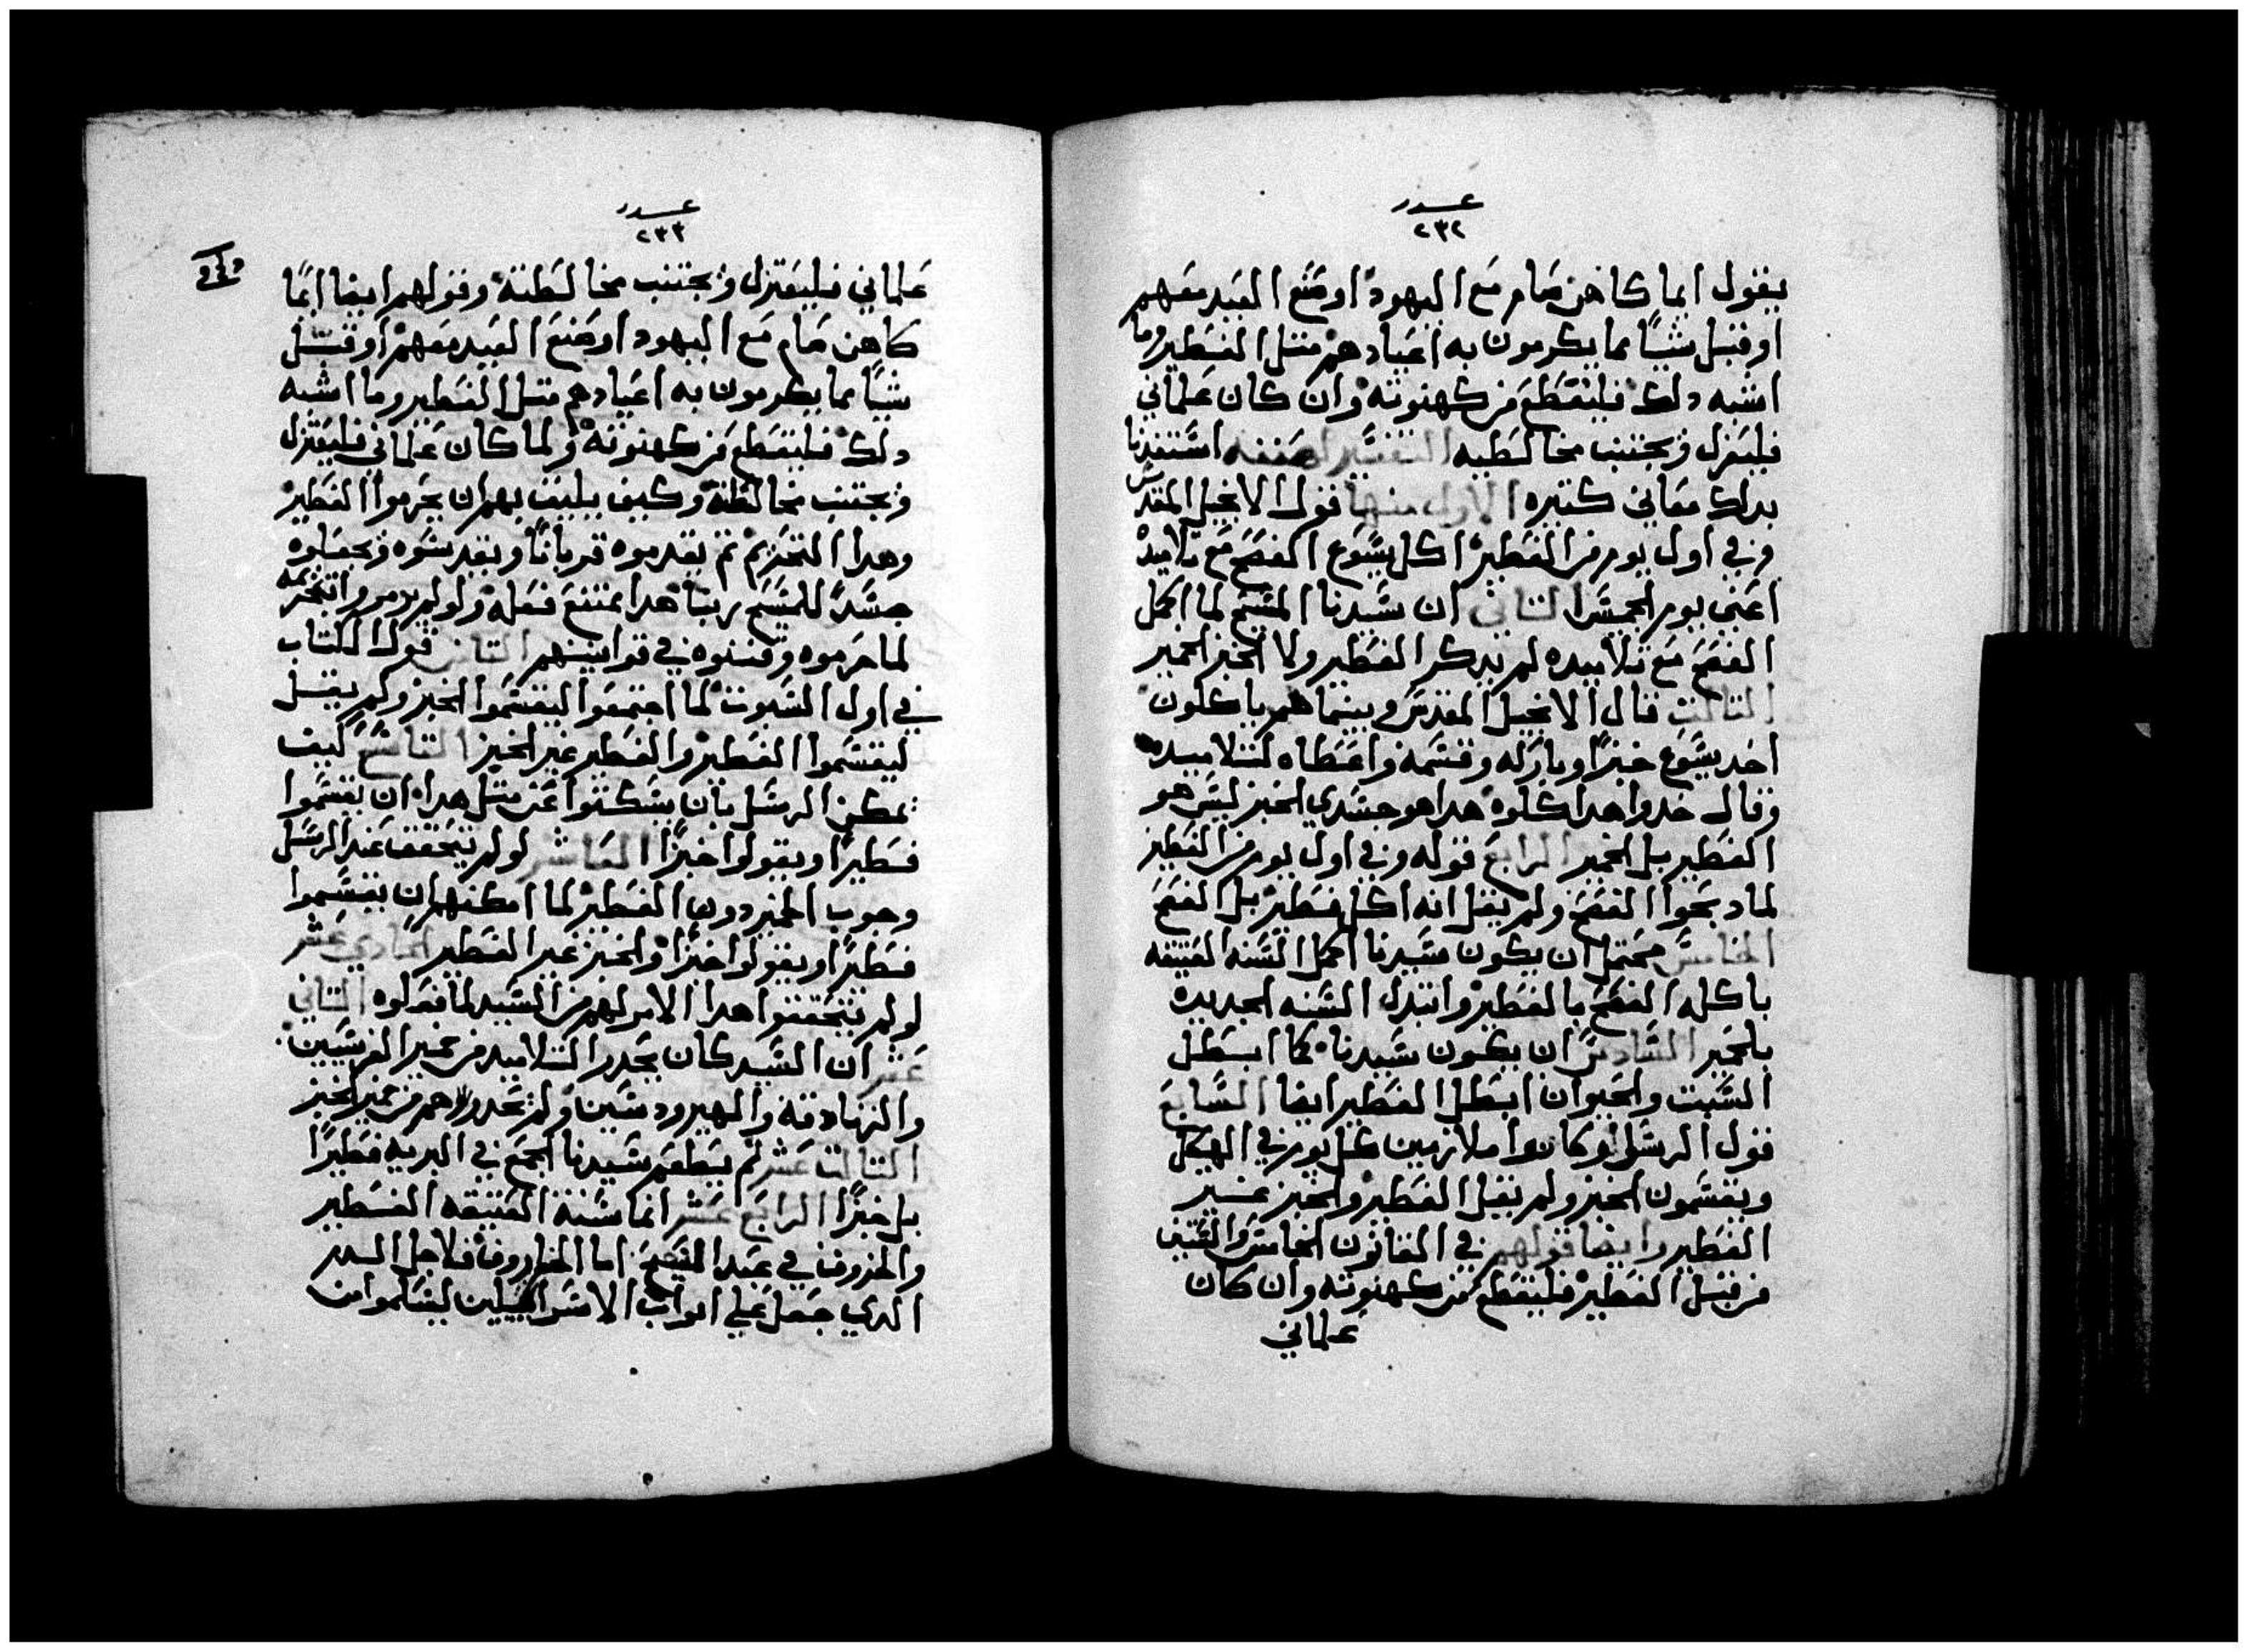 عدد
٢٣٢
يقول ايما كاهن صام مع اليهود او صنع العيد معهم
او قبل شيًا مما يكرمون به اعيادهم متل الفطير وما
اشبه دلك فليقطع من كهنوته وان كان علماني
فليفرل ويجتنب مخالطيه التفسير لصنفه استفدنا
بدلك معاني كتيره الاول منها قول الانجيل المقدس
وفي اول يوم من الفطير اكل يسوع الفصح مع تلاميده
اعني يوم الخميس التاني ان سيدنا المسيح لما اكمل
الفصح مع تلاميده لم يدكر الفطير ولا الخبز الخمير
التالت قال الانجيل المقدس وبينما هم ياكلون
اخد يسوع خبزًا وباركه وقسمه واعطاه لتلاميده
وقال خدوا هدا كلوه هدا هو جسدي الخبز ليس هو
الفطير بل الخمير الرابع قوله وفي اول يوم من الفطير
لما دبحوا الفصح ولم يقل انه اكل فطير بل الفصح
الخامس محتمل ان يكون سيدنا اكمل السنه العتيقه
باكله الفصح بالفطير وابتدا السنه الجديده
بالخمير السادس ان يكون سيدنا كما ابطل
السبت والحيوان ابطل الفطير ايضا السابع
قول الرسل وكانوا ملازمين كل يوم في الهيكل
ويقسمون الخبز ولم يقل الفطير والخبز غير
الفطير وايضا قولهم في القانون الخامس والستين
من قبل الفطير فليقطع من كهنوته وان كان
علماني
عدد
٢٣٣
علماني فليعتزل ويجتنب مخالطته وقولهم ايضا ايما
كاهن صام مع اليهود او صنع العيد معهم او قبل
شيًا مما يكرمون به اعيادهم متل الفطير وما اشبه
دلك فليقطع من كهنوته ولما كان علماني فليعتزل
ويجتنب مخالطته وكيف يليق بهم ان يحرموا الفطير
وهدا التحريم تم يقدموه قربانًا ويقدسوه ويجعلوه
جسدًا للمسيح ربنا هدا يمتنع فعله ولو لم يروموا تحريمه
لما حرموه وقننوه في قوانينهم التامن قول الكتاب
في اول السبوت لما اجتمعوا ليقسموا الخبز ولم يقل
ليقسموا الفطير والفطير غير الخبز التاسع كيف
يمكن الرسل بان يسكتوا عن متل هدا ان يقسموا
فطيرًا ويقولوا خبزًا العاشر لو لم يتحقق عند الرسل
وجوب الخبز دون الفطير لما امكنهم ان يقسموا
فطيرًا ويقولوا خبزًا والخبز غير الفطير الحادي عشر
لو لم يتحققوا هدا الامر لهم من السيد لما فعلوه التاني
عشر ان السيد كان يحدر التلاميد من خمير الفريسين
والزنادقة والهيرودسين ولم يحدرهم من خمير الخبز
التالت عشر لم يطعم سيدنا الجمع في البريه فطيرًا
بل خبزًا الرابع عشر انما سنة العتيقه الفطير
والخروف في عيد الفصح اما الخاروف فلاجل الدم
الدي جعل علي ابواب الاسراييليين ليسلموا من